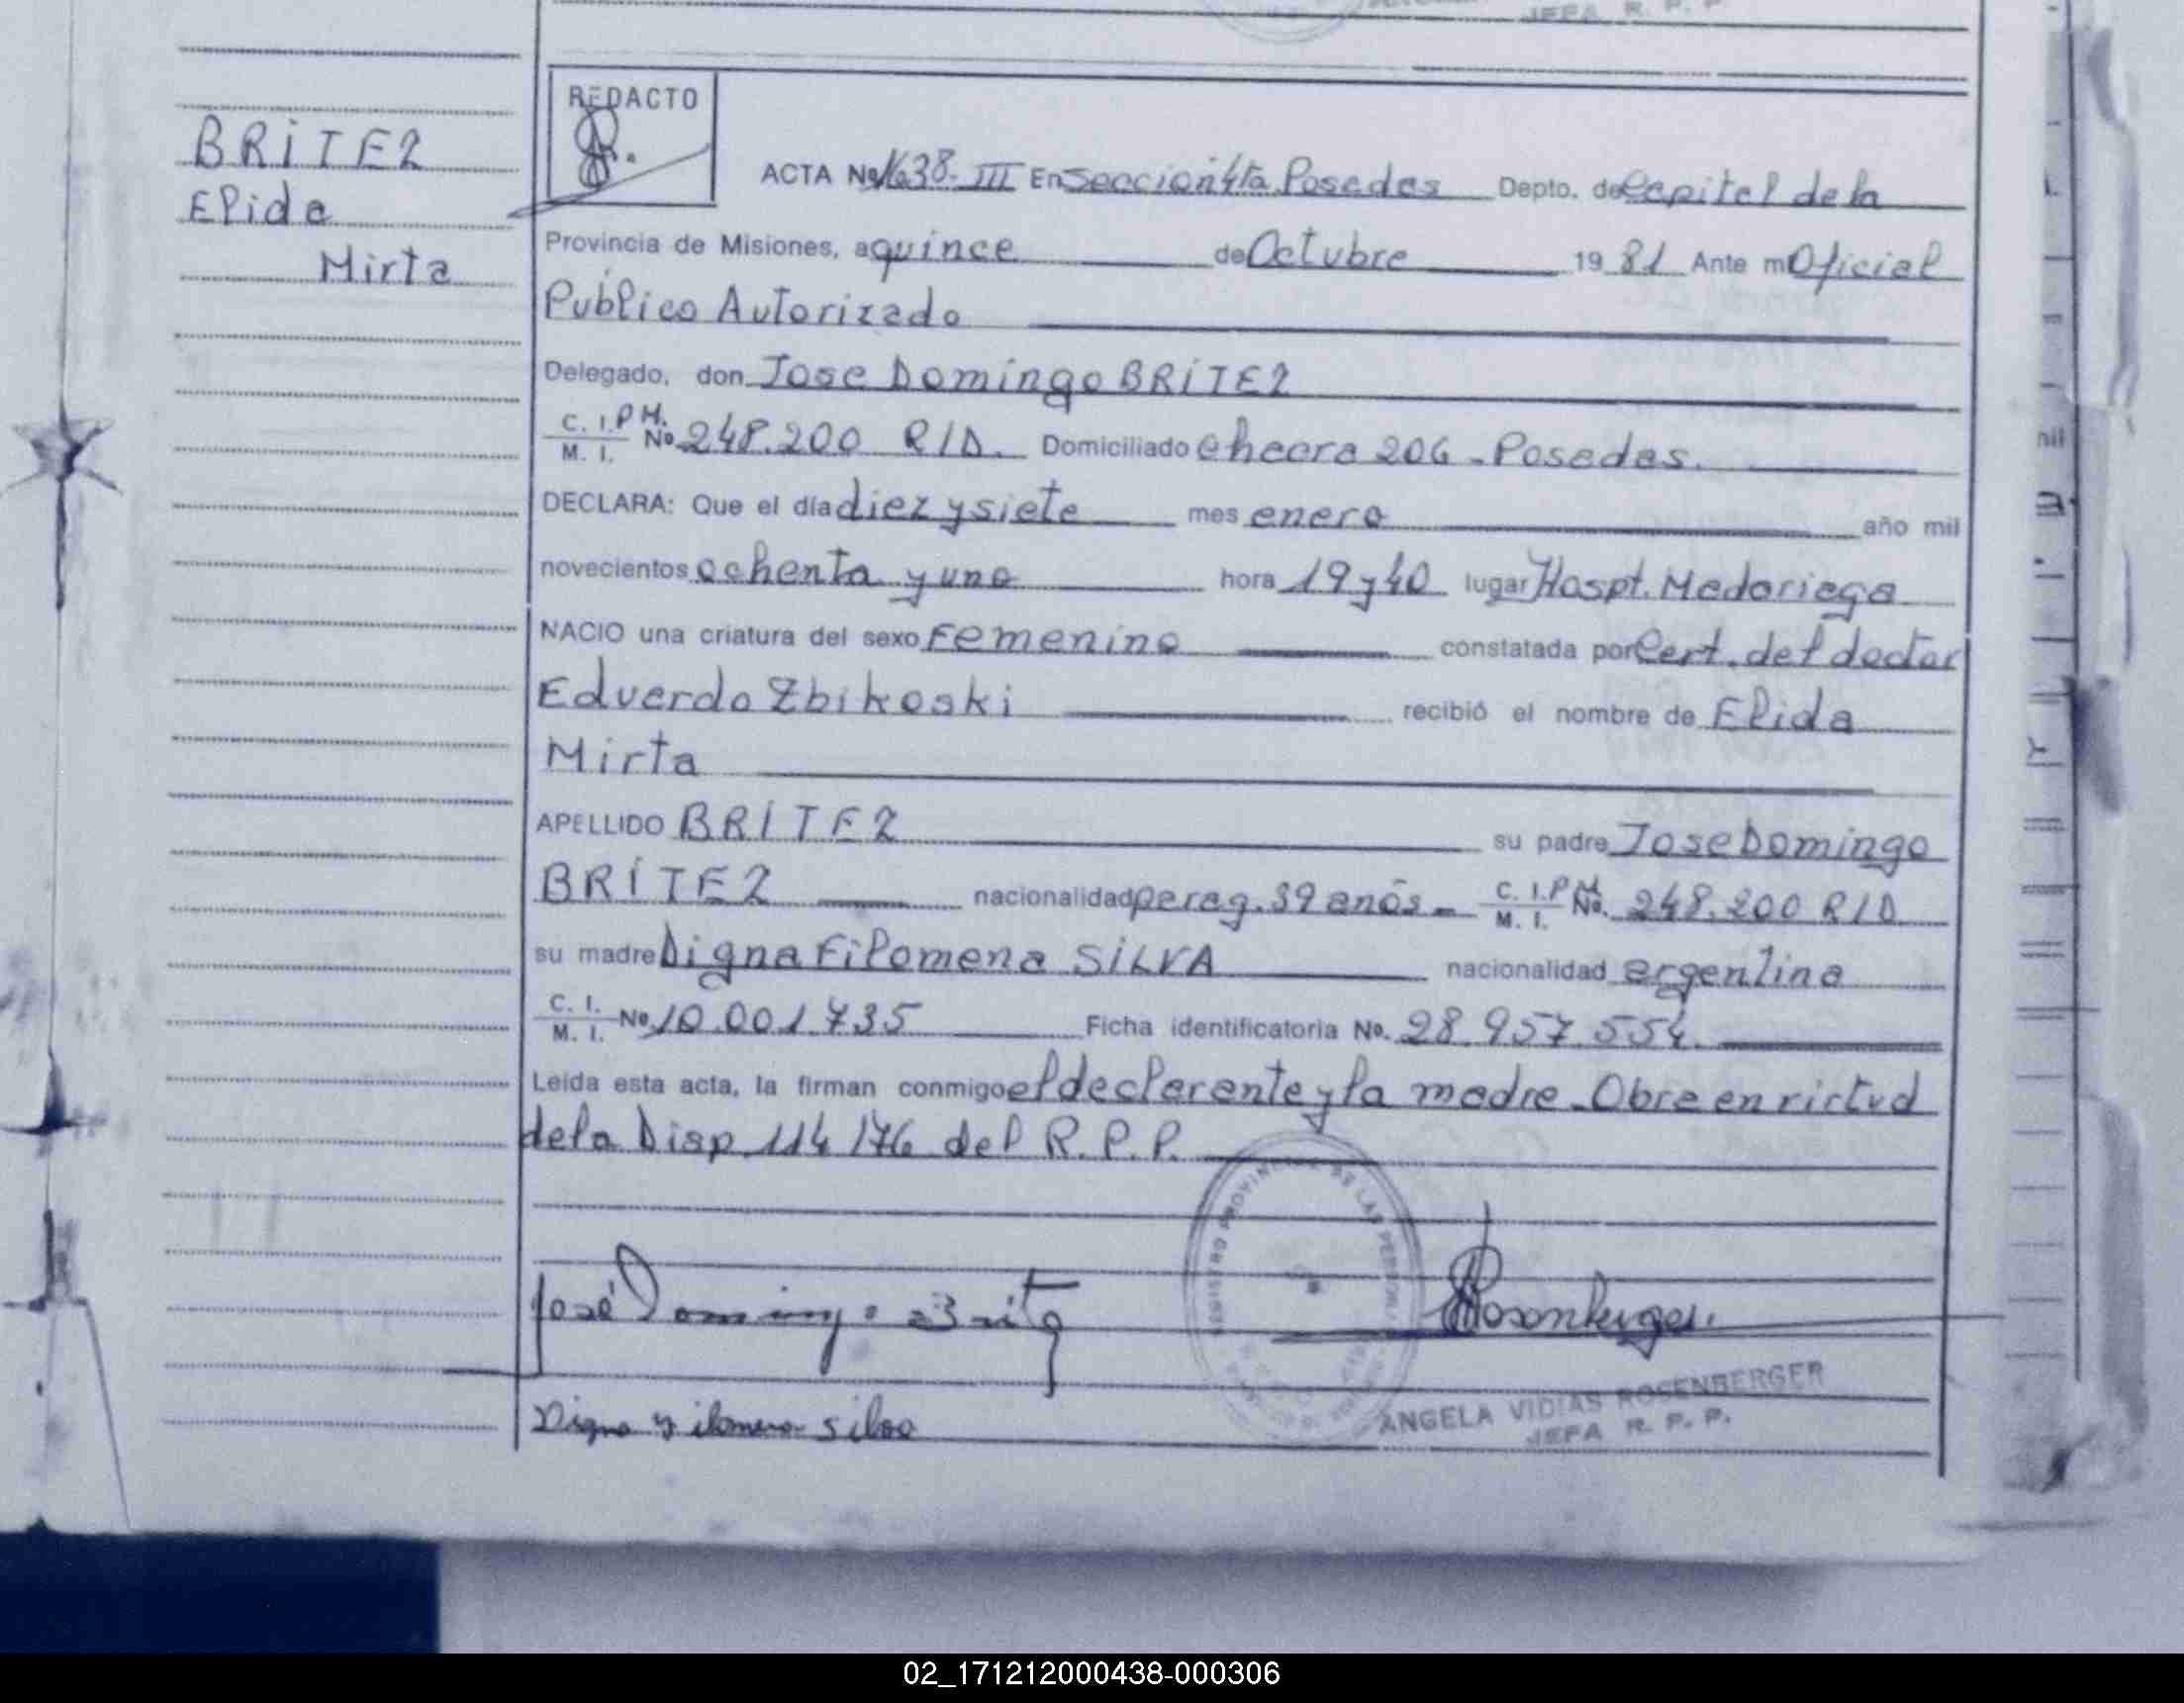 JEFA R. P. P.
REDACTO
BRITEZ
Elida
Mirta
ACTA No 1638- III En Sección 4ta Posadas Depto. de Capital de la
Provincia de Misiones, a quince de Octubre 19 81 Ante mi Oficial
Público Autorizado
Delegado, don Jose Domingo BRITEZ
C. I. P M.
M. I. No 248.200 R/D. Domiciliado Chacra 206 - Posadas.
DECLARA: Que el día diez y siete mes enero año mil
novecientos ochenta y uno hora 19 y 40 lugar Hospt. Madariaga
NACIO una criatura del sexo Femenino constatada por Cert. del doctor
Eduardo Zbikoski recibió el nombre de Elida
Mirta
APELLIDO BRITEZ su padre Jose Domingo
BRITEZ nacionalidad parag. 39 anõs - C. I. P M. No. 248.200 R/D
M. I.
su madre Digna Filomena SILVA nacionalidad argentina
C. I.
M. I. No 10.001.735 Ficha identificatoria No. 28.957.554.
Leída esta acta, la firman conmigo el declarante y la madre - Obra en virtud
de la Disp. 114/76 del R. P. P.
REGISTRO PROVINCIAL DE LAS PERSONAS
José Domingo Brite
Rosenberger.
Digna Filomena Silva
ANGELA VIDIAS ROSENBERGER
JEFA R. P. P.
02_171212000438-000306